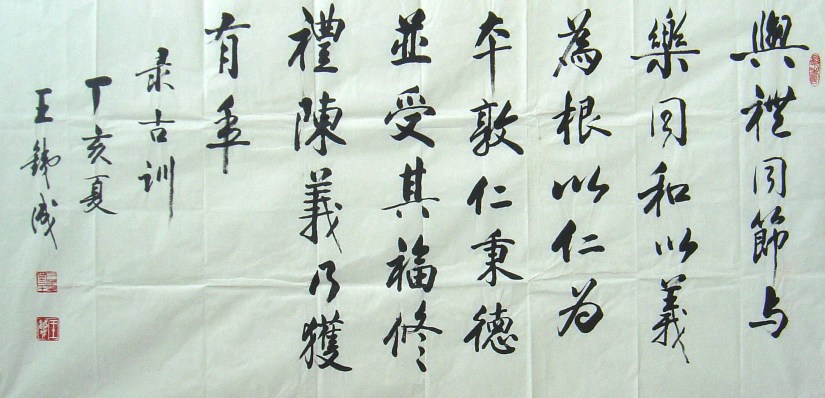 與禮同節与
樂同和以義
為根以仁为
本敦仁秉德
並受其福修
禮陳義乃獲
有年
录古训
丁亥夏
王鐵成